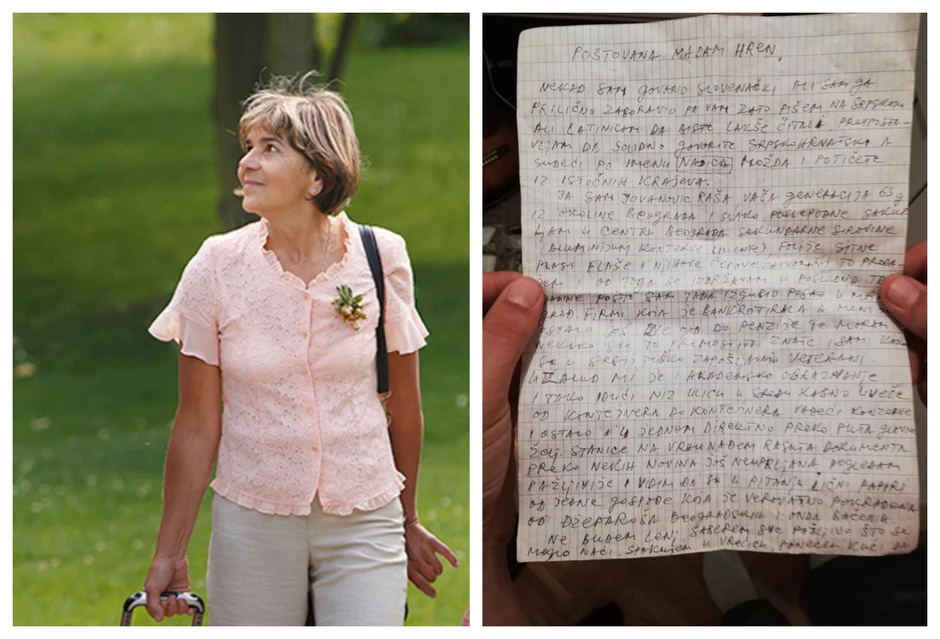 POŠTOVANA MADAM HREN,
NEKAD SAM GOVORIO SLOVENAČKI ALI SAM GA
PRILIČNO ZABORAVIO PA VAM ZATO PIŠEM NA SRPSKOM
ALI LATINICOM DA BISTE LAKŠE ČITALA. PRETPOSTA-
VLJAM DA SOLIDNO GOVORITE SRPSKOHRVATSKI A
SUDEĆI PO IMENU NADICA MOŽDA I POTIČETE
IZ ISTOČNIH KRAJEVA.
JA SAM JOVANOVIĆ RAŠA VAŠA GENERACIJA 63 g
IZ OKOLINE BEOGRADA I SVAKO POSLEPODNE SAKUP
LJAM U CENTRU BEOGRADA SEKUNDARNE SIROVINE
ALUMINIJUM KONZERVE (LIMENKE) FOLIJE SITNE
PLAST. FLAŠE I NJIHOVE ČEPOVE TO PRODA
JEM I OD TOGA SE IZDRŽAVAM POSLEDNJE
GODINE POŠTO SAM TADA IZGUBIO POSAO U
GRAD. FIRMI KOJA JE BANKROTIRALA A MENI
OSTALO JOŠ DO PENZIJE TE MORAM
NEKAKO SVE TO PREMOSTITI. ZNATE I SAMI KAKO
SE U SRBIJI TEŠKO ZAPOŠLJAVAJU VETERANI
UZALUD MI JE AKADEMSKO OBRAZOVANJE
I TAKO IDUĆI NIZ ULICU U SREDU KASNO UVEČE
OD KONTEJNERA DO KONTEJNERA VADEĆI KONZERVE
I OSTALO A U JEDNOM DIREKTNO PREKO PUTA GLAVNE
ŽELJ. STANICE NA VRHU NAĐEM RASUTA DOKUMENTA
PREKO NEKIH NOVINA JOŠ NEUPRLJANA POGLEDAM
PAŽLJIVIJE I VIDIM DA SU U PITANJU LIČNI PAPIRI
OD JEDNE GOSPOĐE KOJA JE VEROVATNO POKRADENA
OD DŽEPAROŠA BEOGRADSKIH I ONDA BAČENIH
NE BUDEM LENJ, SABEREM SVE PAŽLJIVO ŠTO SE
MOGLO NAĆI SPAKUJEM U VREĆICU PONESEM KUĆI DA